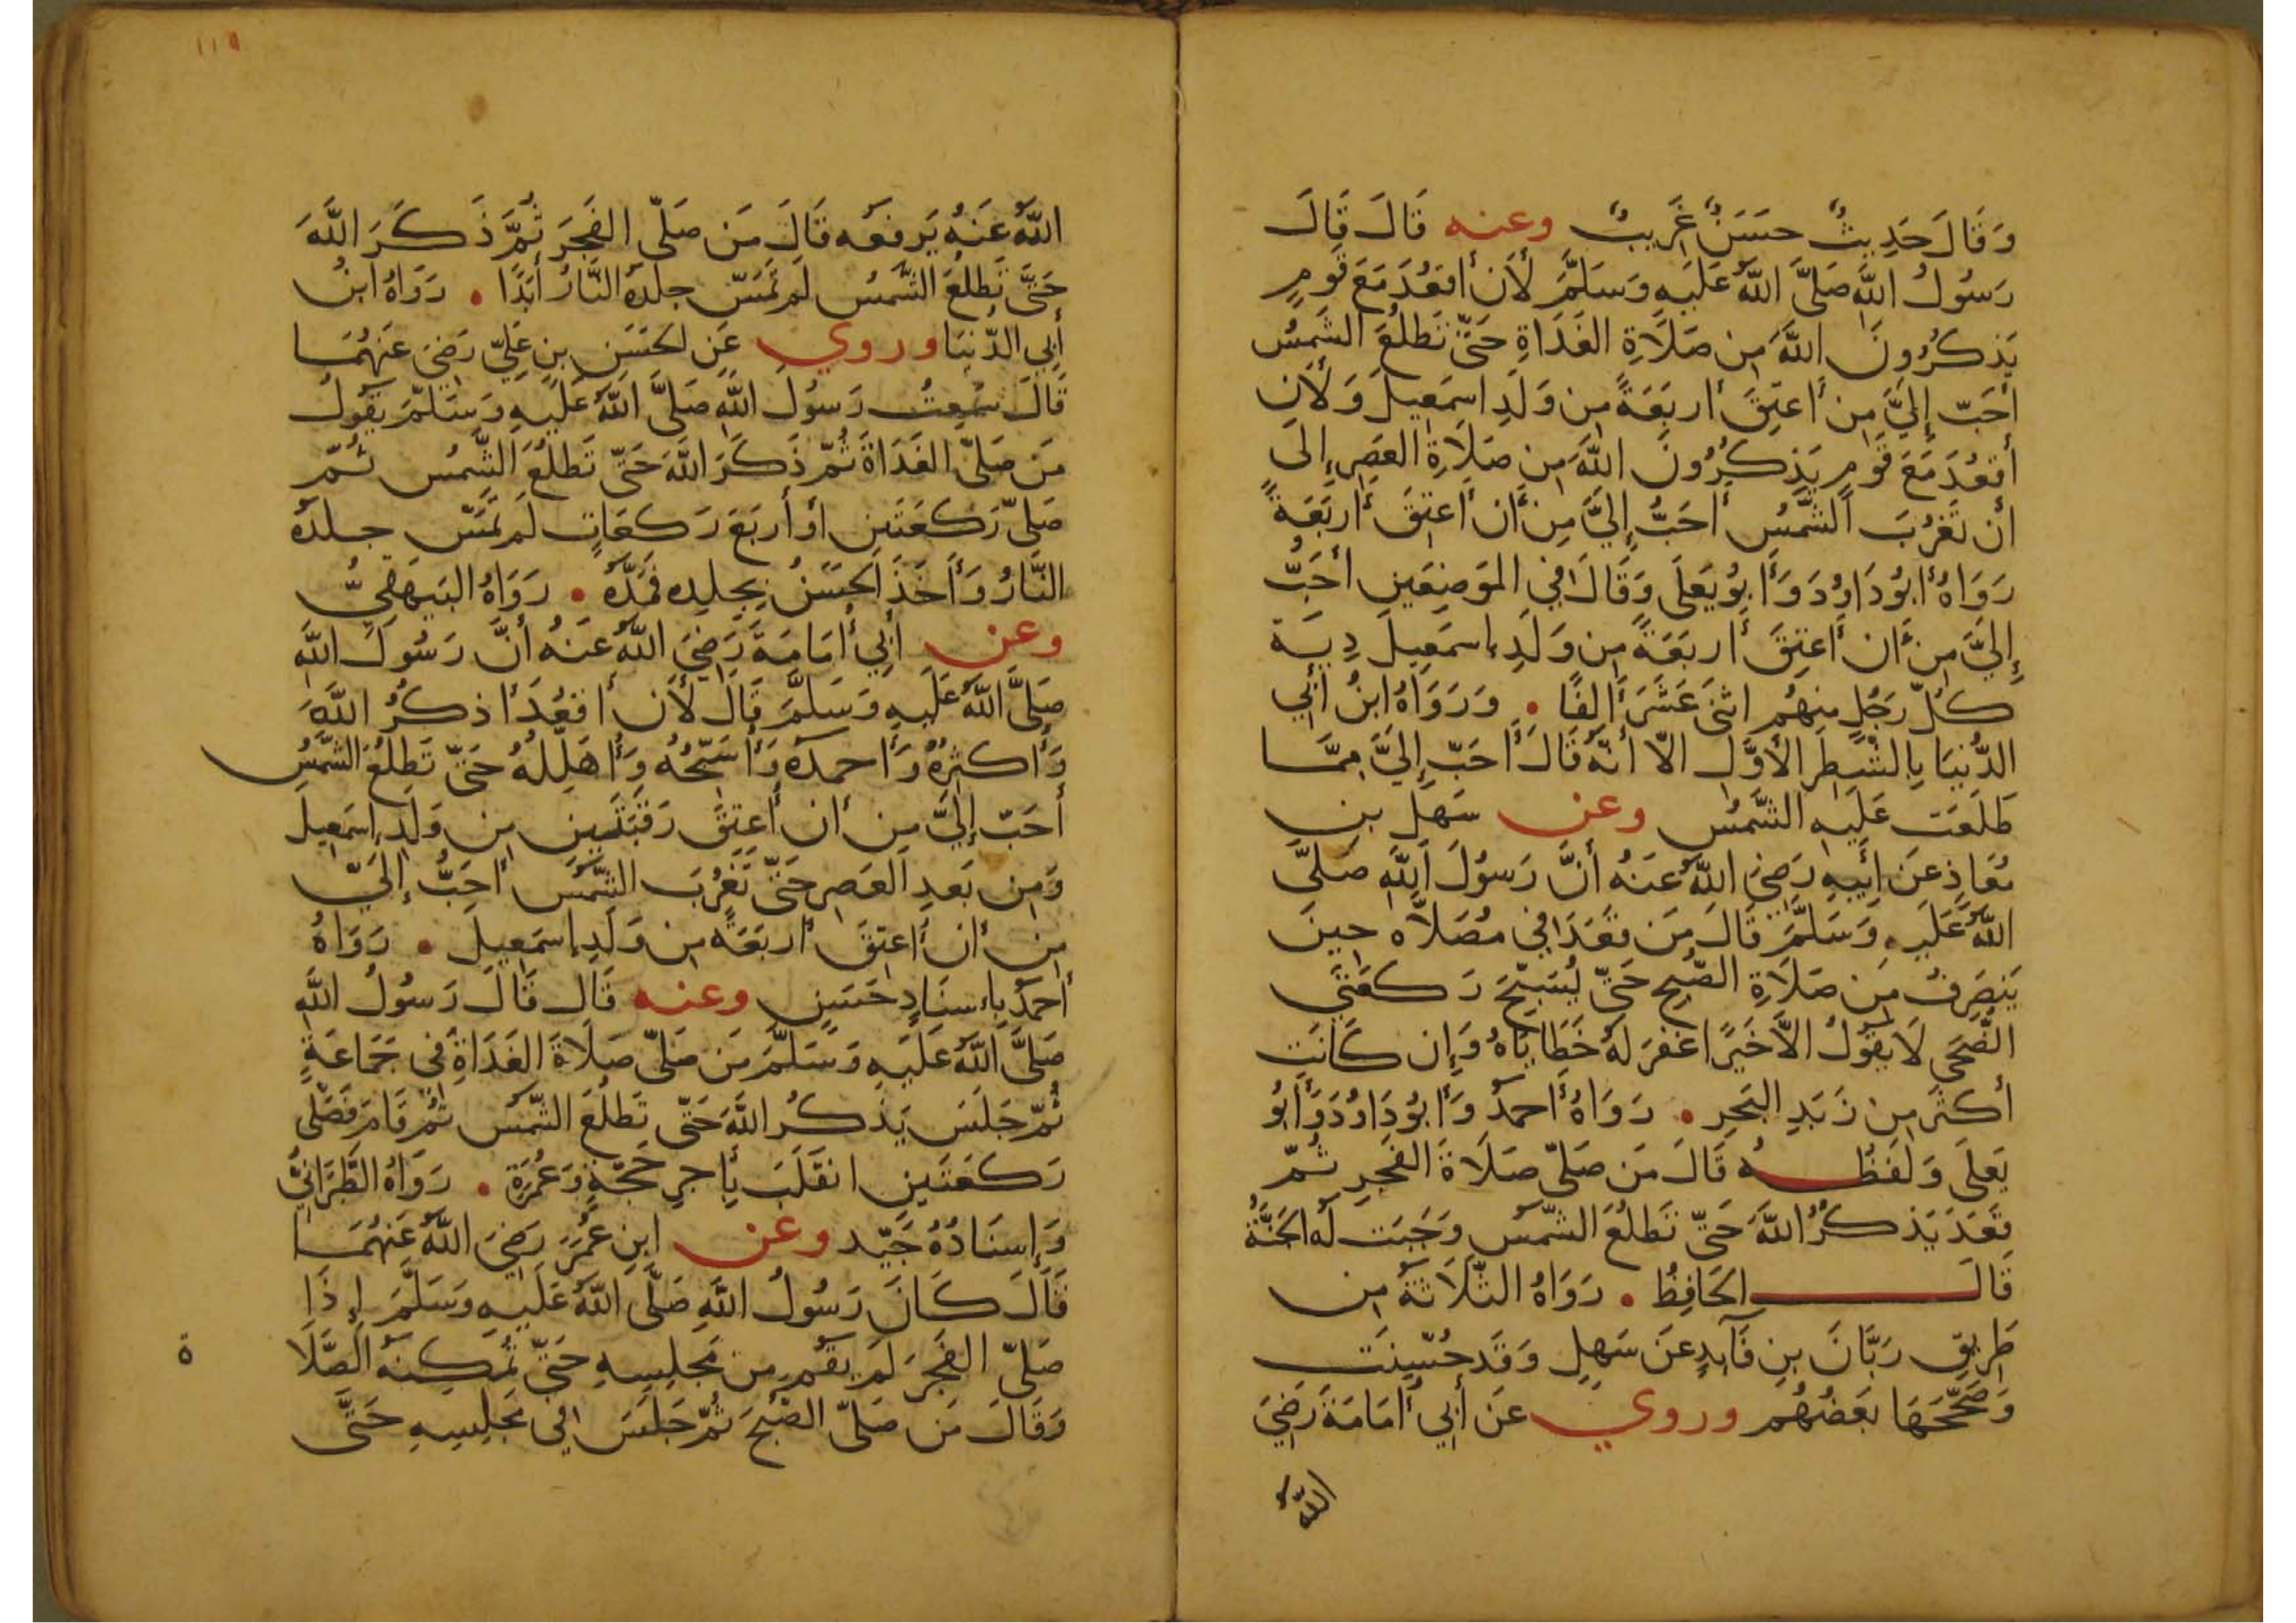 وَقَالَ حَدِيثٌ حَسَنٌ غَرِيبٌ وعنه قَالَ قَالَ
رَسُولُ اللَّهِ صَلَّى اللَّهُ عَلَيهِ وَسَلَّمَ لَأَن أَقعُدَ مَعَ قَومٍ
يَذكُرُونَ اللَّهَ مِن صَلَاةِ الغَدَاةِ حَتَّى تَطلُعَ الشَّمسُ
أَحَبّ إِلَيَّ مِن أَعتِقَ أَربَعَةً مِن وَلَدِ اسمَعِيلَ وَلَأَن
أَقعُدَ مَعَ قَومٍ يَذكُرُونَ اللَّهَ مِن صَلَاةِ العَصرِ إِلَى
أَن تَغرُبَ الشَّمسُ أَحَبُّ إِلَيَّ مِن أَن أَعتِقَ أَربَعَةً
رَوَاهُ أَبُو دَاوُدَ وَأَبُو يَعلَى وَقَالَ فِي المَوضِعَينِ أَحَبُّ
إِلَيَّ مِن أَن أَعتِقَ أَربَعَةً مِن وَلَدِ إِسمَعِيلَ دِيَة
كُلّ رَجُلٍ مِنهُم اثنَى عَشَرَ أَلفًا . وَرَوَاهُ ابنُ أَبِي
الدُّنيَا بِالشَّطرِ الأَوَّلِ الّا أَنَّهُ قَالَ أَحَبّ إِلَيَّ مِمَّا
طَلَعَت عَلَيهِ الشَّمسُ وعن سَهلِ بنِ
مُعَاذٍ عَن أَبِيهِ رَضِيَ اللَّهُ عَنهُ أَنَّ رَسُولَ اللَّهِ صَلَّى
اللَّهُ عَلَيهِ وَسَلَّمَ قَالَ مَن قَعَدَ فِي مُصَلَّاه حِينَ
يَنصَرِفُ مِن صَلَاةِ الصُّبحِ حَتَّى يُسَبِّحَ رَكعَتَي
الضُّحَى لَا يَقُولُ الَّا خَيرًا غُفِرَ لَهُ خَطَايَاهُ وَإِن كَانَت
أَكثَرَ مِن زَبَدِ البَحرِ . رَوَاهُ أَحمَدُ وَأَبُو دَاوُدَ وَأَبُو
يَعلَى وَلَفظُهُ قَالَ مَن صَلَّى صَلَاةَ الفَجرِ ثُمّ
قَعَدَ يَذكُرُ اللَّهَ حَتَّى تَطلُعَ الشَّمسُ وَجَبَت لَهُ الجَنَّةُ
قَالَ الحَافِظُ . رَوَاهُ الثَّلَاثَةُ مِن
طَرِيقِ زَبَّانَ بنِ فَآيِدٍ عَن سَهلٍ وَقَد حُسِّنَت
وَصَحَّحَهَا بَعضُهُم وروي عَن أَبِي أُمَامَةَ رَضِيَ
اللَّهُ
١١٩
اللَّهُ عَنهُ يَرفَعُه قَالَ مَن صَلَّى الفَجرَ ثُمَّ ذَكَرَ اللَّهَ
حَتَّى تَطلُعَ الشَّمسُ لَم تَمَسّ جِلدَهُ النَّارُ أَبَدًا . رَوَاهُ ابنُ
أَبِي الدُّنيَا وروي عَنِ الحَسَنِ بنِ عَلِيّ رَضِيَ عَنهُمَا
قَالَ سَمِعتُ رَسُولَ اللَّهِ صَلَّى اللَّهُ عَلَيهِ وَسَلَّمَ يَقُولُ
مَن صَلَّى الغَدَاةَ ثُمّ ذَكَرَ اللَّهَ حَتَّى تَطلُعَ الشَّمسُ ثُمّ
صَلَّى رَكعَتَينِ أَو أَربَعَ رَكعَاتٍ لَم تَمَسّ جِلدَهُ
النَّارُ وَأَخَذَ الحَسَنُ بِجِلدِه فَمَدَّهُ . رَوَاهُ البَيهَقِيُّ
وعن أَبِي أُمَامَةَ رَضِيَ اللَّهُ عَنهُ أَنَّ رَسُولَ اللَّهِ
صَلَّى اللَّهُ عَلَيهِ وَسَلَّمَ قَالَ لَأَن أَقعُدَ أَذكُرُ اللَّهَ
وَأُكَبِّرُهُ وَأَحمَدُهُ وَأُسَبِّحُهُ وَأُهَلِّلُهُ حَتَّى تَطلُعَ الشَّمسُ
أَحَبّ إِلَيَّ مِن أَن أَعتِقَ رَقَبَتَينِ مِن وَلَدِ إِسمَعِيلَ
وَمِن بَعدِ العَصرِ حَتَّى تَغرُبَ الشَّمسُ أَحَبُّ إِلَيَّ
مِن أَن أَعتِقَ أَربَعَةً مِن وَلَدِ إِسمَعِيلَ . رَوَاهُ
أَحمَدُ بِإِسنَادٍ حَسَنٍ وعنه قَالَ قَالَ رَسُولُ اللَّهِ
صَلَّى اللَّهُ عَلَيهِ وَسَلَّمَ مَن صَلَّى صَلَاةَ الغَدَاةِ فِي جَمَاعَةٍ
ثُمّ جَلَسَ يَذكُرُ اللَّهَ حَتَّى تَطلُعَ الشَّمسُ ثُمّ قَامَ فَصَلَّى
رَكعَتَينِ انقَلَبَ بِأَجرِ حَجَّةٍ وَعُمرَةٍ . رَوَاهُ الطَّبَرَانِيُّ
وَإِسنَادُهُ جَيِّد وعن ابنِ عُمَرَ رَضِيَ اللَّهُ عَنهُمَا
قَالَ كَانَ رَسُولُ اللَّهِ صَلَّى اللَّهُ عَلَيهِ وَسَلَّمَ إِذَا
صَلَّى الفَجرَ لَم يَقُم مِن مَجلِسِهِ حَتَّى تُمكِنَهُ الصَّلَا ة
وَقَالَ مَن صَلَّى الصُّبحَ ثُمّ جَلَسَ فِي مَجلِسِهِ حَتَّى